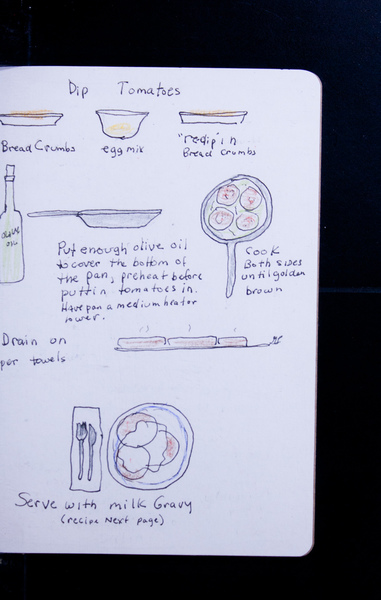 Dip Tomatoes
Bread Crumbs
egg mix
"redip" in
Bread crumbs
olive
oil
Put enough olive oil
to cover the bottom of
the pan, preheat before
puttin tomatoes in.
Have pan a medium heat or
lower.
Cook
Both sides
until golden
brown
Drain on
per towels
Serve with milk Gravy
(recipe Next page)